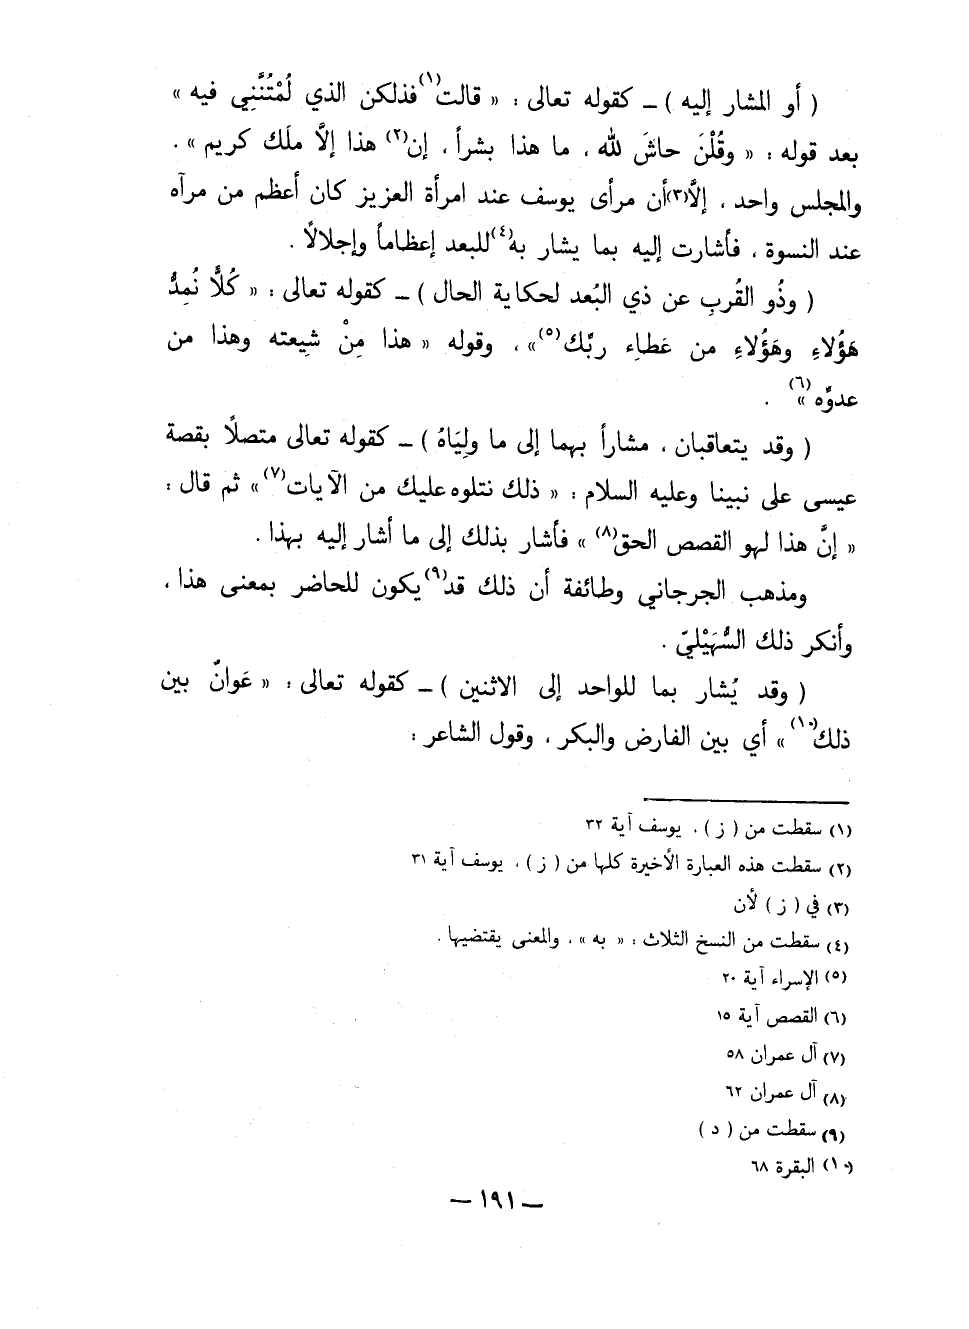 ( أو المشار إليه ) ــ كقوله تعالى : « قالت(١) فذلكن الذي لُمْتُنَّنِي فيه »
بعد قوله : « وقُلْنَ حاشَ لله ، ما هذا بشرأ ، إن(٢) هذا إلَّا ملَك كريم » .
والمجلس واحد ، إلَّا(٣) أن مرأى يوسف عند امرأة العزيز كان أعظم من مرآه
عند النسوة ، فأشارت إليه بما يشار به(٤) للبعد إعظاماً وإجلالًا .
( وذُو القُربِ عن ذي البُعد لحكاية الحال ) ــ كقوله تعالى : « كُلًّا نُمِدُّ
هَؤُلاءِ وهَؤُلاءِ من عَطاءِ ربِّك(٥) » ، وقوله « هذا مِنْ شيعته وهذا من
عدوِّه »(٦) .
( وقد يتعاقبان ، مشارأ بهما إلى ما ولِيَاهُ ) ــ كقوله تعالى متصلًا بقصة
عيسى على نبينا وعليه السلام : « ذلك نتلوه عليك من الآيات(٧) » ثم قال :
« إنَّ هذا لهو القصص الحق(٨) » فأشار بذلك إلى ما أشار إليه بهذا .
ومذهب الجرجاني وطائفة أن ذلك قد(٩) يكون للحاضر بمعنى هذا ،
وأنكر ذلك السُّهَيْليّ .
( وقد يُشار بما للواحد إلى الاثنين ) ــ كقوله تعالى : « عَوانٌ بين
ذلك(١٠) » أي بين الفارض والبكر ، وقول الشاعر :
(١) سقطت من ( ز ) . يوسف آية ٣٢
(٢) سقطت هذه العبارة الأخيرة كلها من ( ز ) . يوسف آية ٣١
(٣) في ( ز ) لأن
(٤) سقطت من النسخ الثلاث : « به » ، والمعنى يقتضيها .
(٥) الإسراء آية ٢٠
(٦) القصص آية ١٥
(٧) آل عمران ٥٨
(٨) آل عمران ٦٢
(٩) سقطت من ( د )
(١٠) البقرة ٦٨
ــ ١٩١ ــ